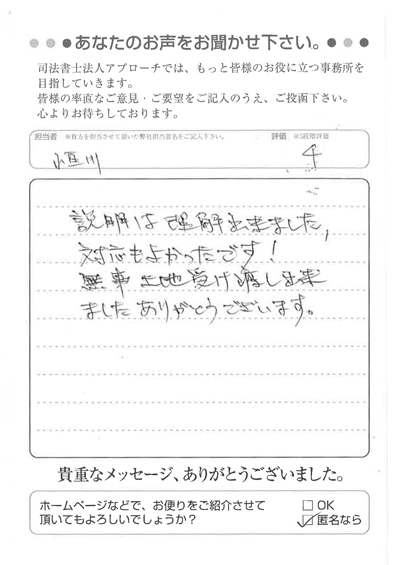 あなたのお声をお聞かせ下さい。
司法書士法人アプローチでは、もっと皆様のお役に立つ事務所を
目指していきます。
皆様の率直なご意見・ご要望をご記入のうえ、ご投函下さい。
心よりお待ちしております。
担当者 ※貴方を担当させて頂いた弊社担当者名をご記入下さい。 評価 ※5段階評価
小亘川 4
説明は理解出来ました,
対応もよかったです!
無事土地受け渡し出来
ましたありがとうございます。
貴重なメッセージ、ありがとうございました。
ホームページなどで、お便りをご紹介させて
頂いてもよろしいでしょうか?
□ OK
☑ 匿名なら